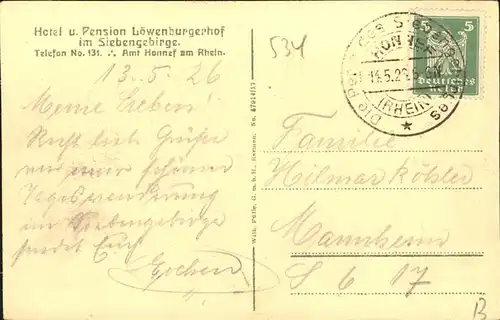 Hotel u. Pension Löwenburgerhof
im Siebengebirge.
Telefon No. 131. ∴ Amt Honnef am Rhein.
13.5.26
Meine Lieben!
Recht lieb. Grüße
von einer schönen
Tageswanderung
im Siebengebirge
sendet Euch
Jochen
Wilh. Fülle, G. m. b. H., Barmen. No.
534
Die Perle des Siebengeb
HONNEF
14.5.26
(RHEIN)
5 5
Deutsches
Reich
Familie
Hilmar Köhler
Mannheim
S 6 17
B